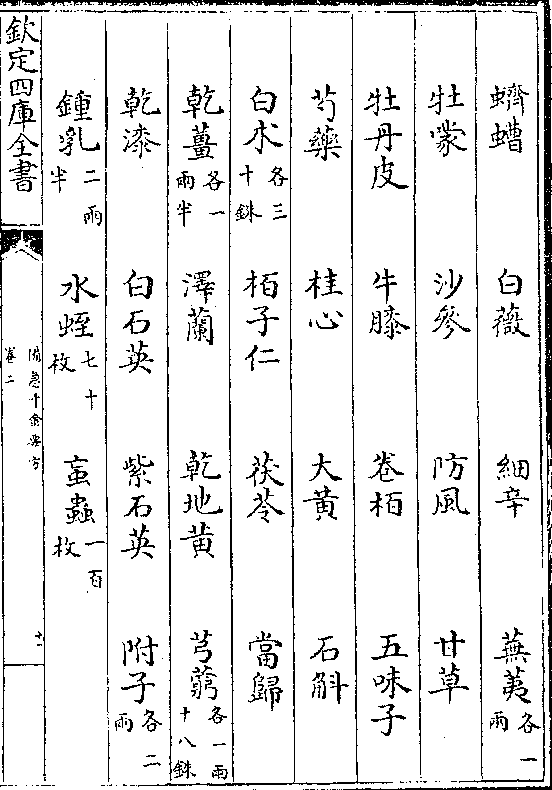 蠐螬 白薇 細辛 蕪荑各一兩
牡䝉 沙參 防風 甘草
牡丹皮 牛膝 卷栢 五味子
芍藥 桂心 大黄 石斛
白术各三十銖 栢子仁 茯苓 當歸
乾薑各一兩半 澤蘭 乾地黄 芎藭各一兩十八銖
乾漆 白石英 紫石英 附子各二兩
鍾乳二兩半 水蛭七十枚 䖟蟲一百枚
欽定四庫全書
備急千金要方
卷二